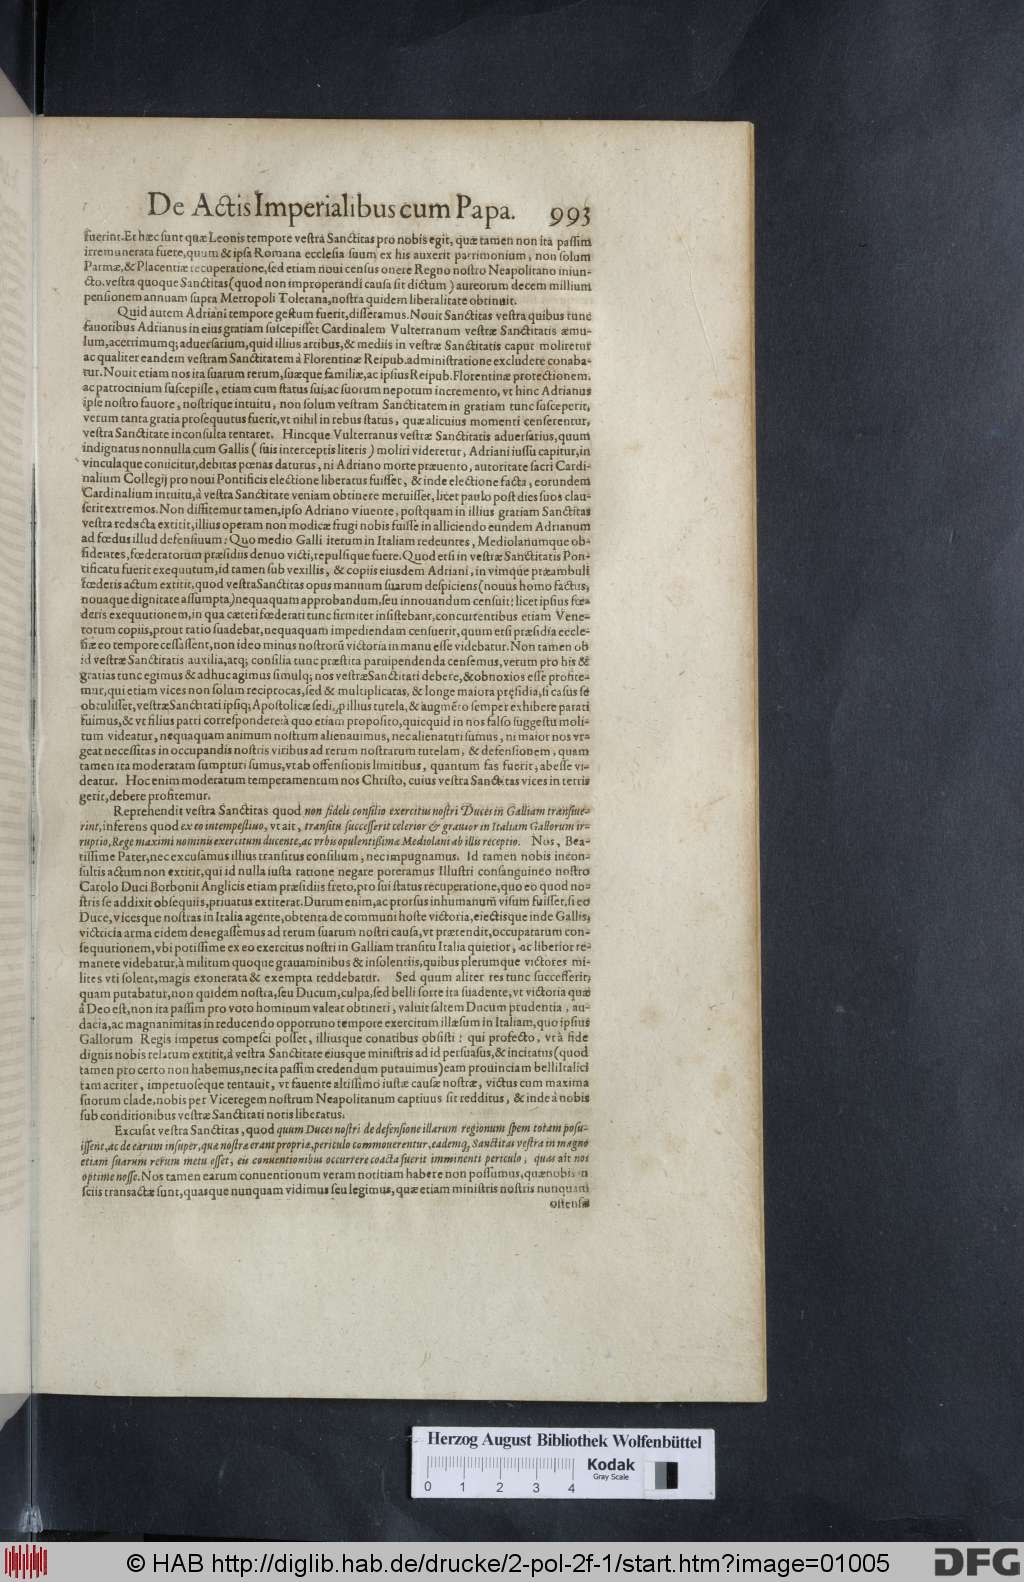 De Actis Imperialibus cum Papa. 993
fuerint. Et hæc sunt quæ Leonis tempore vestra Sanctitas pro nobis egit, quæ tamen non ita passim
irremunerata fuere, quum & ipsa Romana ecclesia suum ex his auxerit patrimonium, non solum
Parmæ, & Placentiæ recuperatione, sed etiam noui census onere Regno nostro Neapolitano iniun-
cto. vestra quoque Sanctitas (quod non improperandi causa sit dictum) aureorum decem millium
pensionem annuam supra Metropoli Toletana, nostra quidem liberalitate obtinuit.
Quid autem Adriani tempore gestum fuerit, disseramus. Nouit Sanctitas vestra quibus tunc
fauoribus Adrianus in eius gratiam suscepisset Cardinalem Vulterranum vestræ Sanctitatis æmu-
lum, acerrimumq; aduersarium, quid illius artibus, & mediis in vestræ Sanctitatis caput moliretur
ac qualiter eandem vestram Sanctitatem à Florentinæ Reipub. administratione excludere conaba-
tur. Nouit etiam nos ita suarum rerum, suæque familiæ, ac ipsius Reipub. Florentinæ protectionem,
ac patrocinium suscepisse, etiam cum status sui, ac suorum nepotum incremento, vt hinc Adrianus
ipse nostro fauore, nostrique intuitu, non solum vestram Sanctitatem in gratiam tunc susceperit,
verum tanta gratia prosequutus fuerit, vt nihil in rebus status, quæ alicuius momenti censerentur,
vestra Sanctitate inconsulta tentaret. Hincque Vulterranus vestræ Sanctitatis aduersarius, quum
indignatus nonnulla cum Gallis (suis interceptis literis) moliri videretur, Adriani iussu capitur, in
vinculaque coniicitur, debitas pœnas daturus, ni Adriano morte præuento, autoritate sacri Cardi-
nalium Collegij pro noui Pontificis electione liberatus fuisset, & inde electione facta, eorundem
Cardinalium intuitu, à vestra Sanctitate veniam obtinere meruisset, licet paulo post dies suos clau-
serit extremos. Non diffitemur tamen, ipso Adriano viuente, postquam in illius gratiam Sanctitas
vestra redacta extitit, illius operam non modicæ frugi nobis fuisse in alliciendo eundem Adrianum
ad fœdus illud defensiuum: Quo medio Galli iterum in Italiam redeuntes, Mediolanumque ob-
sidentes, fœderatorum præsidiis denuo victi, repulsique fuere. Quod etsi in vestræ Sanctitatis Pon-
tificatu fuerit exequutum, id tamen sub vexillis, & copiis eiusdem Adriani, in vimque præambuli
fœderis actum extitit, quod vestra Sanctitas opus manuum suarum despiciens (nouus homo factus,
nouaque dignitate assumpta) nequaquam approbandum, seu innouandum censuit: licet ipsius fœ-
deris exequutionem, in qua cæteri fœderati tunc firmiter insistebant, concurrentibus etiam Vene-
torum copiis, prout ratio suadebat, nequaquam impediendam censuerit, quum etsi præsidia eccle-
siæ eo tempore cessassent, non ideo minus nostrorũ victoria in manu esse videbatur. Non tamen ob
id vestræ Sanctitatis auxilia, atq; consilia tunc præstita paruipendenda censemus, verum pro his &
gratias tunc egimus & adhuc agimus simulq; nos vestræ Sanctitati debere, & obnoxios esse profite-
mur, qui etiam vices non solum reciprocas, sed & multiplicatas, & longe maiora pręsidia, si casus se
obtulisset, vestræ Sanctitati ipsiq; Apostolicæ sedi, ꝓ illius tutela, & augmẽto semper exhibere parati
fuimus, & vt filius patri correspondere: à quo etiam proposito, quicquid in nos falso suggestu moli-
tum videatur, nequaquam animum nostrum alienauimus, nec alienaturi sumus, ni maior nos vr-
geat necessitas in occupandis nostris viribus ad rerum nostrarum tutelam, & defensionem, quam
tamen ita moderatam sumpturi sumus, vt ab offensionis limitibus, quantum fas fuerit, abesse vi-
deatur. Hoc enim moderatum temperamentum nos Christo, cuius vestra Sanctitas vices in terris
gerit, debere profitemur.
Reprehendit vestra Sanctitas quod non fideli consilio exercitus nostri Duces in Galliam transiue-
rint, inferens quod ex eo intempestiuo, vt ait, transitu successerit celerior & grauior in Italiam Gallorum ir-
ruptio, Rege maximi nominis exercitum ducente, ac vrbis opulentißimæ Mediolani ab illis receptio. Nos, Bea-
tissime Pater, nec excusamus illius transitus consilium, nec impugnamus. Id tamen nobis incon-
sultis actum non extitit, qui id nulla iusta ratione negare poteramus Illustri consanguineo nostro
Carolo Duci Borbonii Anglicis etiam præsidiis freto, pro sui status recuperatione, quo eo quod no-
stris se addixit obsequiis, priuatus extiterat. Durum enim, ac prorsus inhumanum visum fuisset, si eo
Duce, vicesque nostras in Italia agente, obtenta de communi hoste victoria, eiectisque inde Gallis,
victricia arma eidem denegassemus ad rerum suarum nostri causa, vt prætendit, occupatarum con-
sequutionem, vbi potissime ex eo exercitus nostri in Galliam transitu Italia quietior, ac liberior re-
manere videbatur, à militum quoque grauaminibus & insolentiis, quibus plerumque victores mi-
lites vti solent, magis exonerata & exempta reddebatur. Sed quum aliter res tunc successerit,
quam putabatur, non quidem nostra, seu Ducum, culpa, sed belli sorte ita suadente, vt victoria quæ
à Deo est, non ita passim pro voto hominum valeat obtineri, valuit saltem Ducum prudentia, au-
dacia, ac magnanimitas in reducendo opportuno tempore exercitum illæsum in Italiam, quo ipsius
Gallorum Regis impetus compesci posset, illiusque conatibus obsisti: qui profecto, vt à fide
dignis nobis relatum extitit, à vestra Sanctitate eiusque ministris ad id persuasus, & incitatus (quod
tamen pro certo non habemus, nec ita passim credendum putauimus) eam prouinciam belli Italici
tam acriter, impetuoseque tentauit, vt fauente altissimo iustæ causæ nostræ, victus cum maxima
suorum clade, nobis per Viceregem nostrum Neapolitanum captiuus sit redditus, & inde à nobis
sub conditionibus vestræ Sanctitati notis liberatus.
Excusat vestra Sanctitas, quod quum Duces nostri de defensione illarum regionum spem totam posu-
issent, ac de earum insuper, quæ nostræ erant propriæ, periculo commouerentur, eademq; Sanctitas vestra in magno
etiam suarum rerum metu esset, eis conuentionibus occurrere coacta fuerit imminenti periculo, quas ait nos
optime nosse. Nos tamen earum conuentionum veram notitiam habere non possumus, quæ nobis in
sciis transactæ sunt, quasque nunquam vidimus seu legimus, quæ etiam ministris nostris nunquam
ostensæ
Herzog August Bibliothek Wolfenbüttel
Kodak
Gray Scale
0 1 2 3 4
© HAB http://diglib.hab.de/drucke/2-pol-2f-1/start.htm?image=01005
DFG